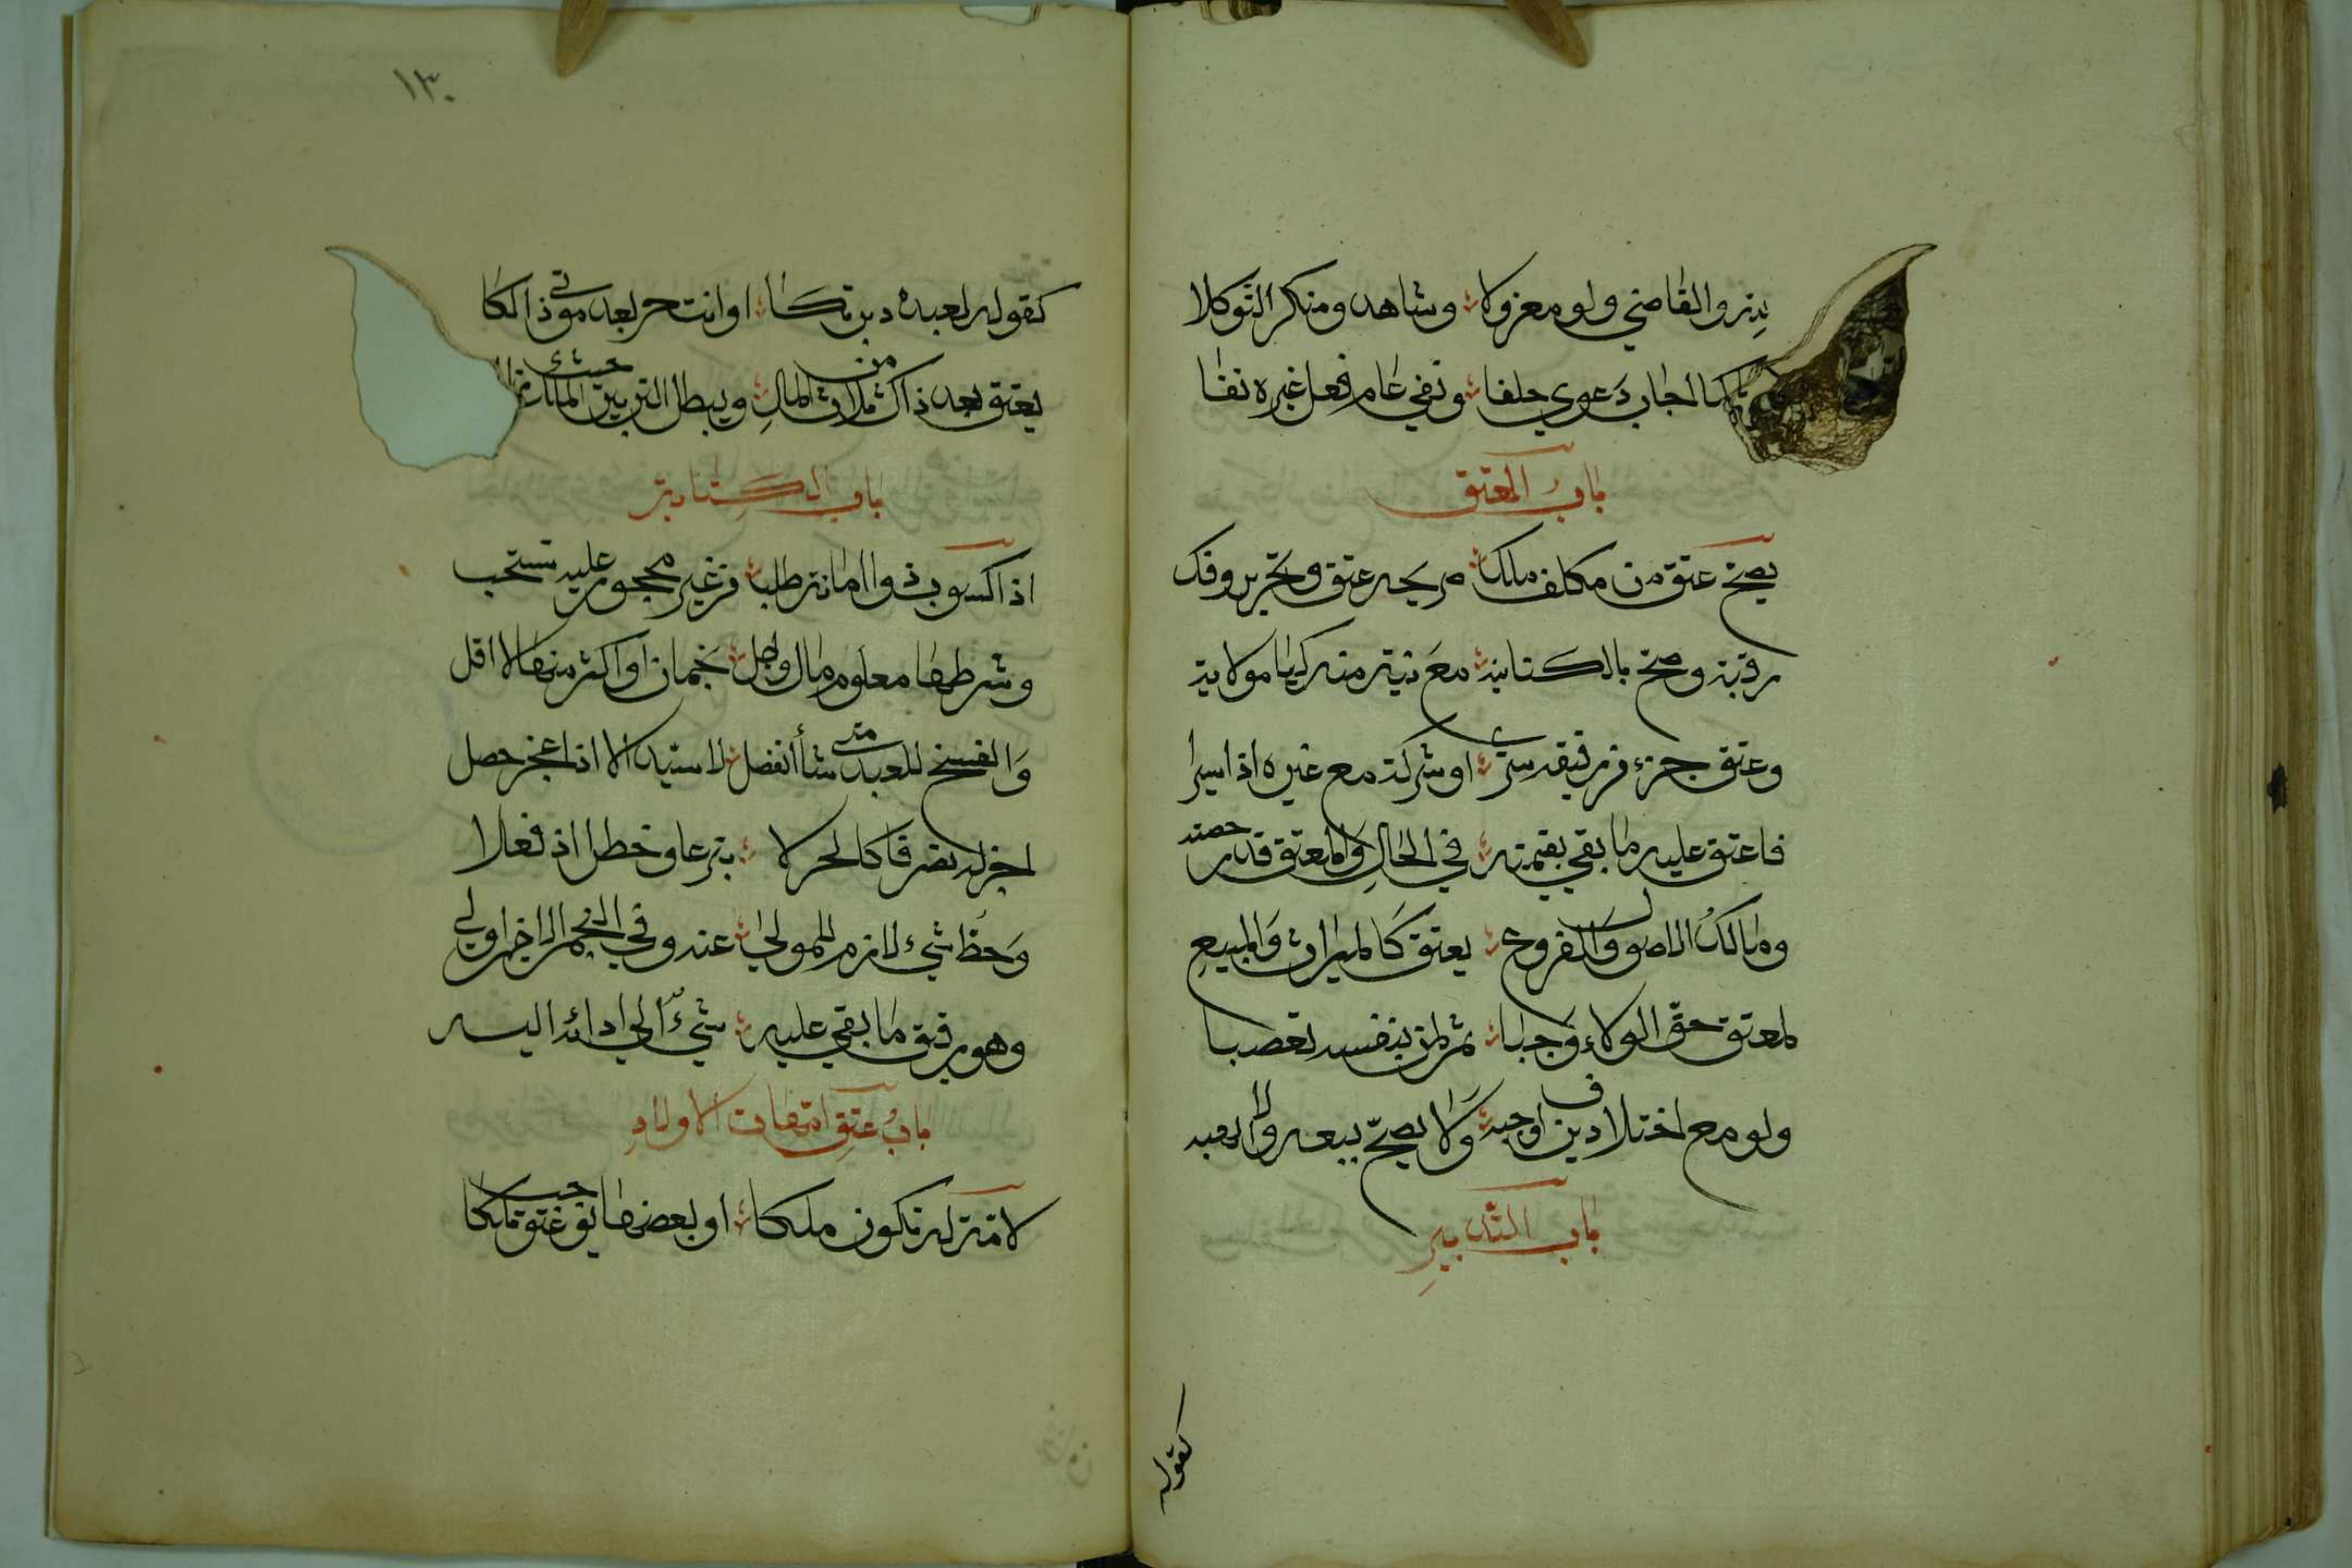 بذر والقاضي ولو معزولا وشاهد ومنكر التوكلا
كما اجاب دعوي حلفا ونفي عام فعل غيره نفا
باب العتق
يصح عتق من مكلف ملك صريحه عتق وتحرير وفك
رقبة وصح بالكناية مع نية منه كيا مولاية
وعتق جزء من رقيقه سرى او شركة مع غيره اذا يسرا
فاعتق عليه ما بقي بقيمته في الحال والمعتق قدر حصته
ومالك الاصول والفروع يعتق كالميراث والمبيع
لمعتق حق الولاء وجبا ثم لمن بنفسه تعصبا
ولو مع اختلاف دين اوجبه ولا يصح بيعه ولا الهبه
باب التدبير
كقوله
١٣٠
كقوله لعبده دبرتكا او انت حر بعد موتي ذالكا
يعتق بعده ذاك من ثلاث المال ويبطل التدبير حيث الملك
باب الكتابة
اذا كسوب ذو امانة طلب من غير محجور عليه تستحب
وشرطها معلوم مال واجل نجمان او اكثر منها لا اقل
والفسخ للعبد متى شأ انفصل لا سيد الا اذا عجز حصل
اجز له تصرفا كالحر لا تبرعا وخطرا اذ فعلا
وحط شيء لازم للمولى عنه وفي النجم الاخير اولى
وهو رقيق ما بقي عليه شيء الى ادائه اليه
باب عتق امهات الاولاد
لامة له تكون ملكا او بعضها